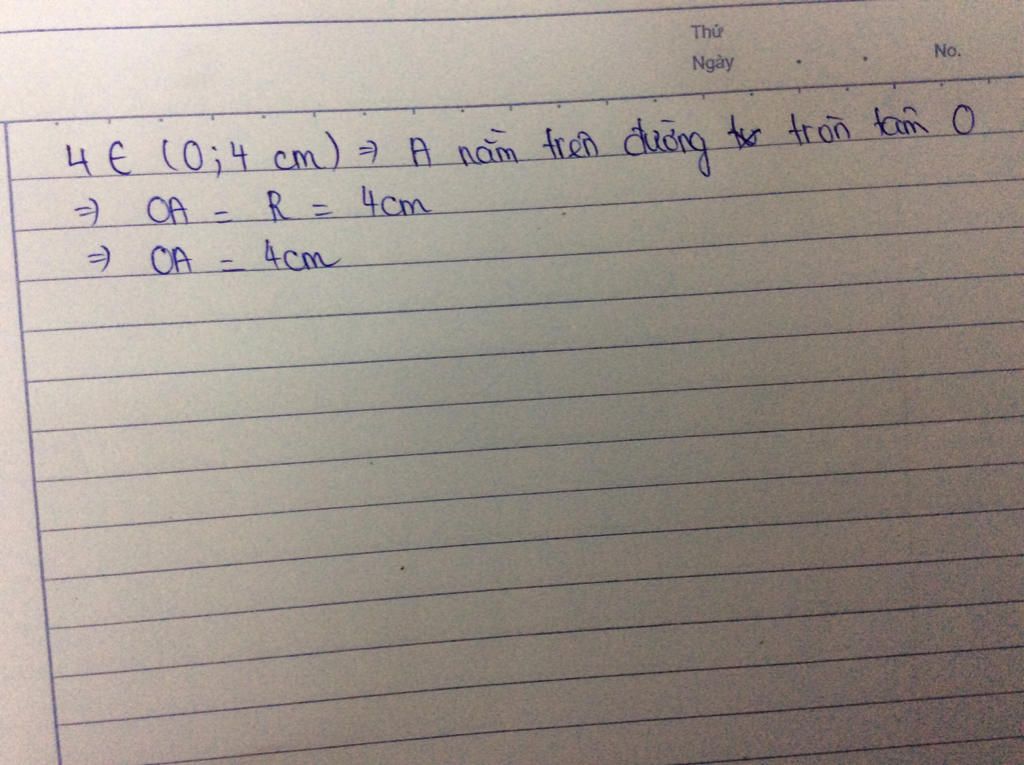 Thứ
Ngày . . No.
4 ∈ (O; 4 cm) ⇒ A nằm trên đường tròn tâm O
⇒ OA = R = 4cm
⇒ OA = 4cm